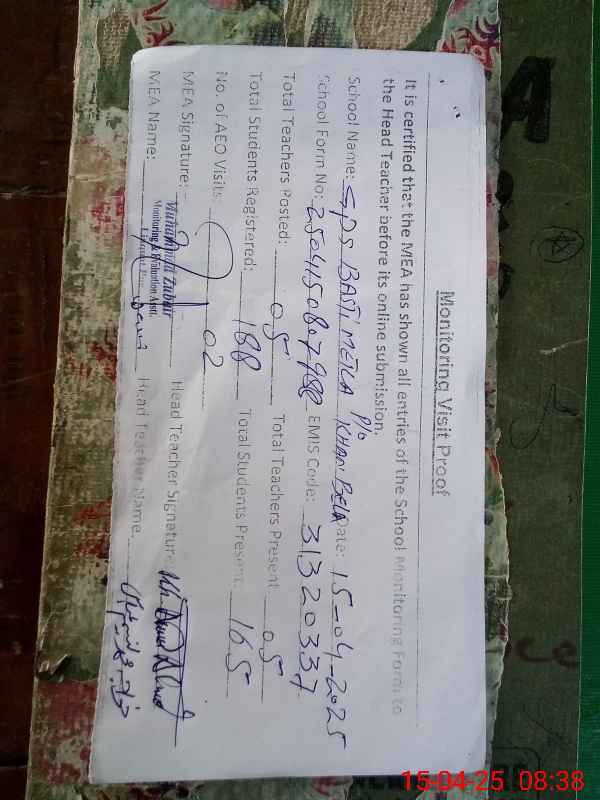 Monitoring Visit Proof
It is certified that the MEA has shown all entries of the School Monitoring Form to
the Head Teacher before its online submission.
School Name: GPS BASTI METLA P/o KHAN BELA Date: 15-04-2025
School Form No: EMIS Code: 31320337
Total Teachers Posted: 05 Total Teachers Present 05
Total Students Registered: 188 Total Students Present: 165
No. of AEO Visits: 02
MEA Signature: Head Teacher Signature
Muhammad Zubair
Monitoring & Evaluation Asst.
MEA Name: Head Teacher Name:
15-04-25 08:38